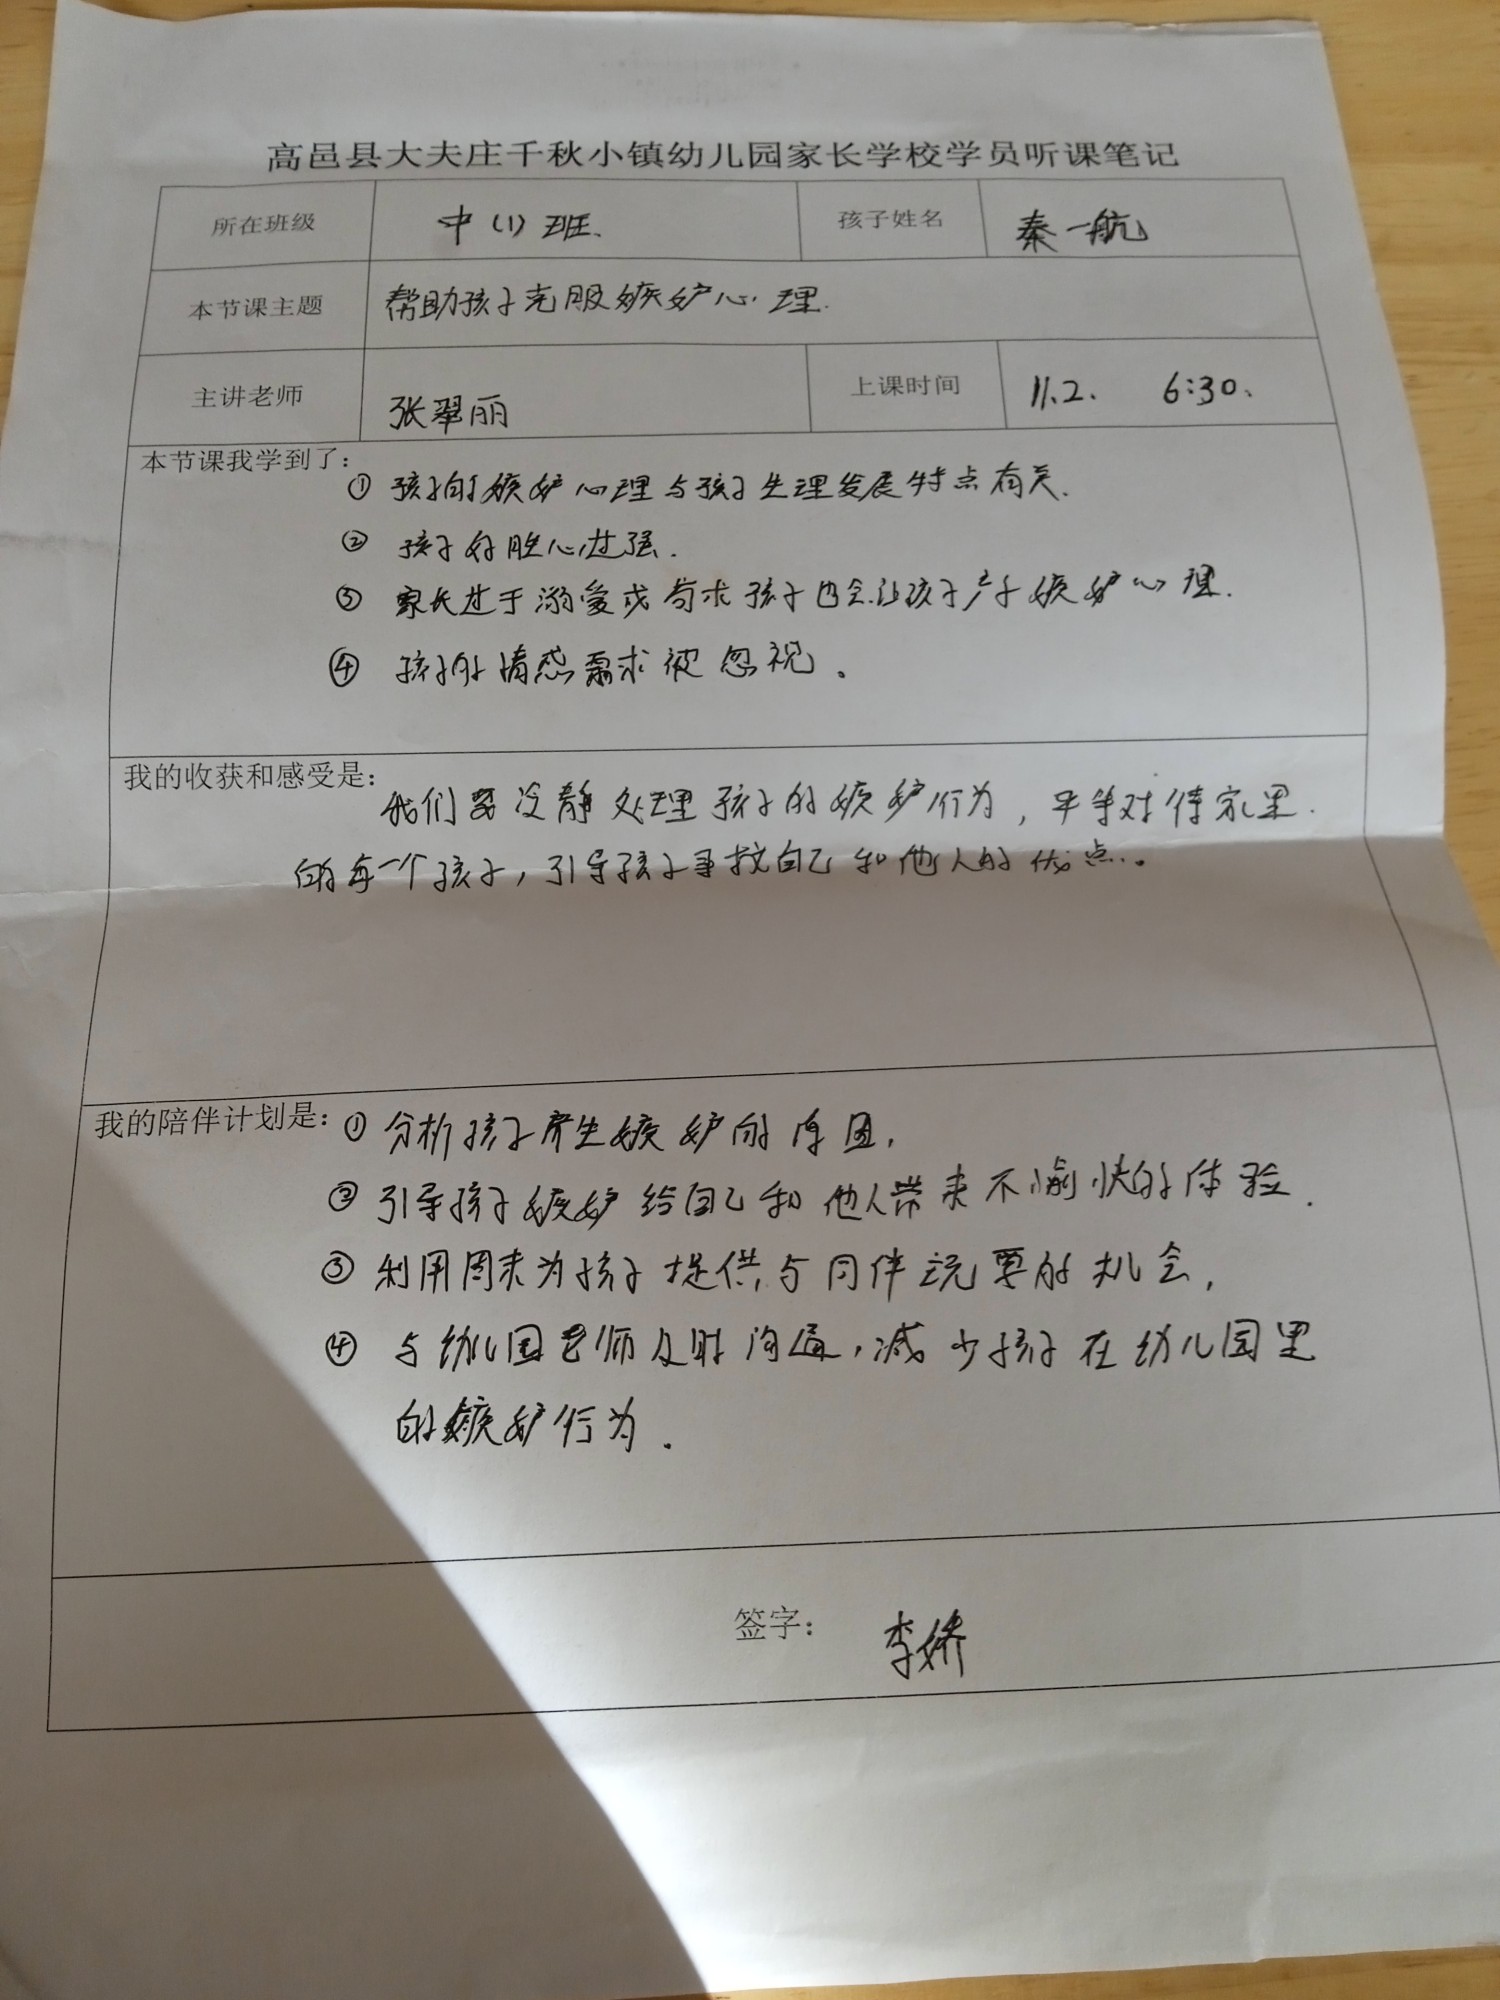 高邑县大夫庄千秋小镇幼儿园家长学校学员听课笔记
所在班级 中(1)班、 孩子姓名 秦一航
本节课主题 帮助孩子克服嫉妒心理.
主讲老师 张翠丽 上课时间 11.2. 6:30、
本节课我学到了:
① 孩子的嫉妒心理与孩子生理发展特点有关.
② 孩子好胜心过强.
③ 家长过于溺爱或苛求孩子也会让孩子产子嫉妒心理.
④ 孩子的情感需求被忽视。
我的收获和感受是:
我们要冷静处理孩子的嫉妒行为,平等对待家里.
的每一个孩子,引导孩子寻找自己和他人的优点。
我的陪伴计划是: ① 分析孩子产生嫉妒的原因,
② 引导孩子嫉妒给自己和他人带来不愉快的体验.
③ 利用周末为孩子提供与同伴玩耍的机会,
④ 与幼儿园老师及时沟通,减少孩子在幼儿园里
的嫉妒行为.
签字: 李娇